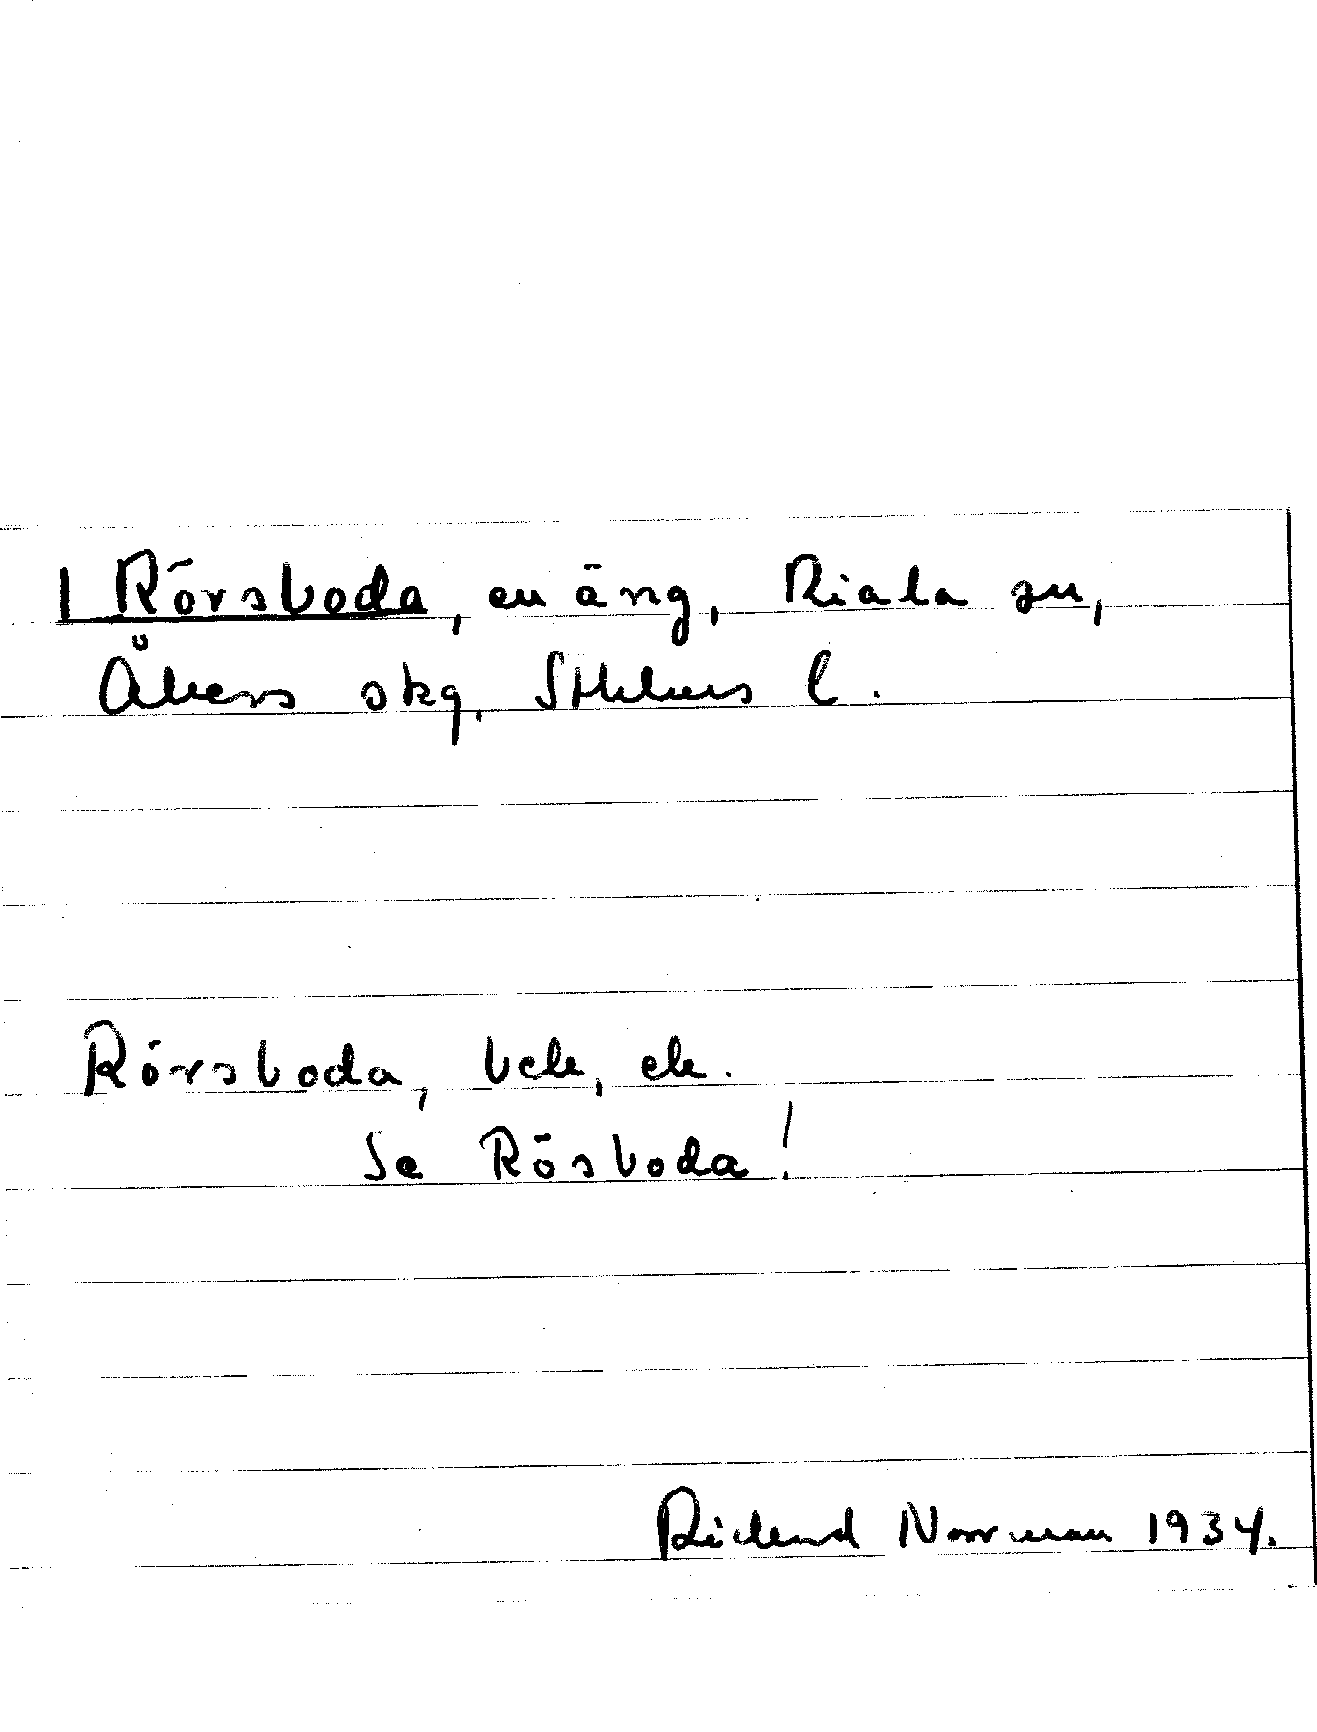 1 Rörsboda, en äng, Riala sn,
Åkers skg, Sthlms l.
Rörsboda, bck, ck.
Se Rösboda!
Richard Norrman 1934.